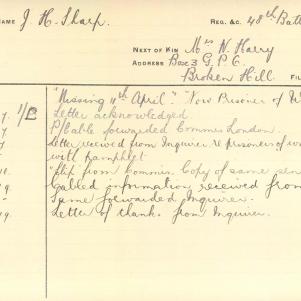 NAME J. H. Sharp. REG. &C. 48th Batt
NEXT OF KIN Mrs N. Harry
ADDRESS Box 3 G. P. O.
Broken Hill FIL
"Missing 11th April." "Now Prisoner of W
7. 1/B Letter acknowledged
7. P/Cable forwarded Commrs London.
Letter received from Inquirer re prisoners of wa
with pamphlet
Slip from Commrs. Copy of same sen
9. Cabled information received from
Same forwarded Inquirer.
19. Letter of thanks from Inquirer.